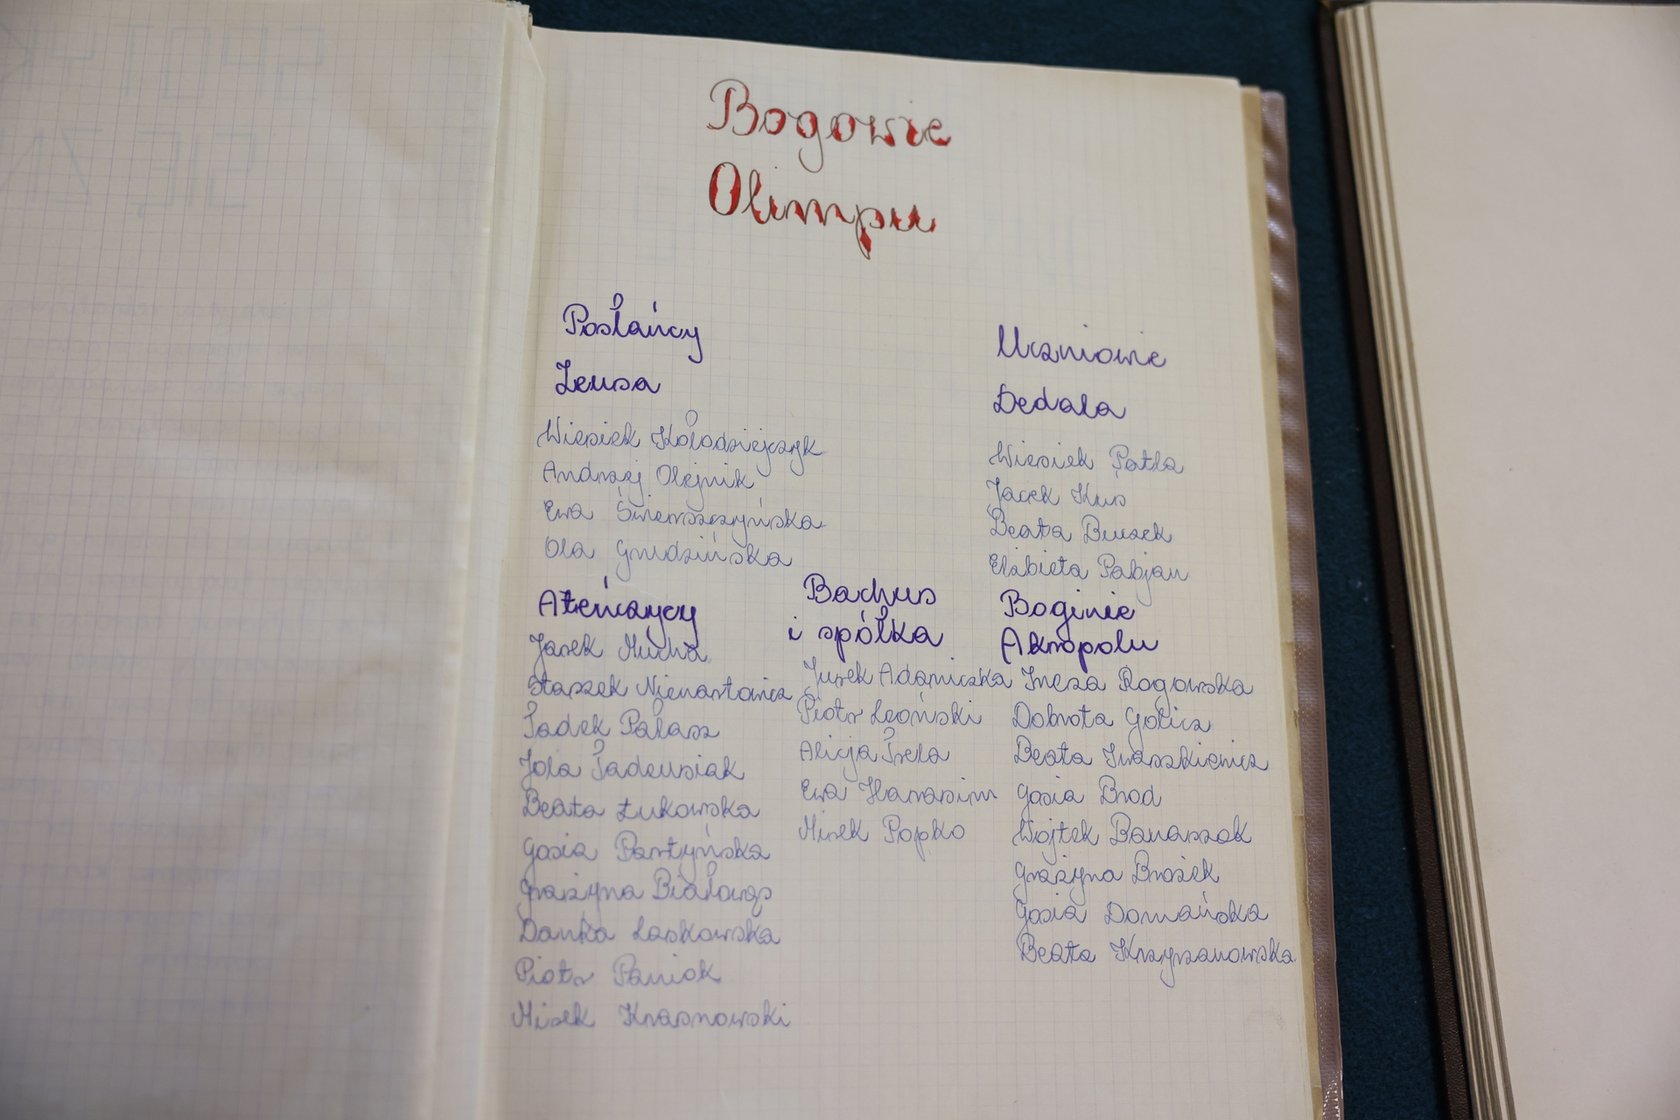 Bogowie
Olimpu
Posłańcy
Zeusa
Wiesiek Kołodziejczyk
Andrzej Olejnik
Ewa Świerszczyńska
Ola Grudzińska
Uczniowie
Dedala
Wiesiek Patla
Jacek Kus
Beata Buszek
Elżbieta Pabjan
Ateńczycy
Jarek Mucha
Staszek Nienartowicz
Tadek Pałasz
Jola Tadeusiak
Beata Łukowska
Gosia Partyńska
Grażyna Białowąs
Danka Laskowska
Piotr Paniak
Mirek Krasnowski
Bachus
i spółka
Jurek Adamiczka
Piotr Leoński
Alicja Trela
Ewa Harasim
Mirek Popko
Boginie
Akropolu
Ineza Rogowska
Dobrota Golicz
Beata Iwaszkiewicz
Gosia Brod
Wojtek Banaszak
Grażyna Brożek
Gosia Domańska
Beata Krzyżanowska